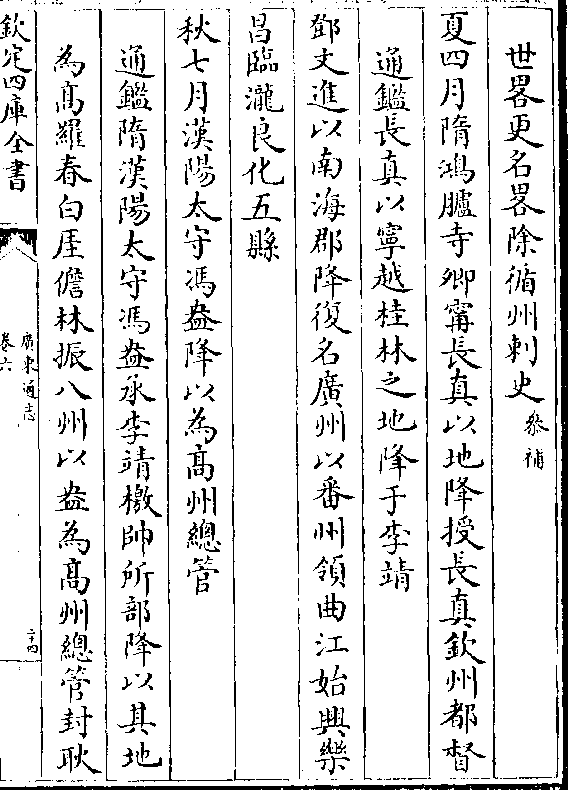 世畧更名畧除循州刺史叅補
夏四月隋鴻臚寺卿甯長真以地降授長真欽州都督
通鑑長真以寧越桂林之地降于李靖
鄧文進以南海郡降復名廣州以番州領曲江始興樂
昌臨瀧良化五縣
秋七月漢陽太守馮盎降以為髙州總管
通鑑隋漢陽太守馮盎承李靖檄帥所部降以其地
為髙羅春白厓儋林振八州以盎為髙州總管封耿
欽定四庫全書
廣東通志
卷六
二十四